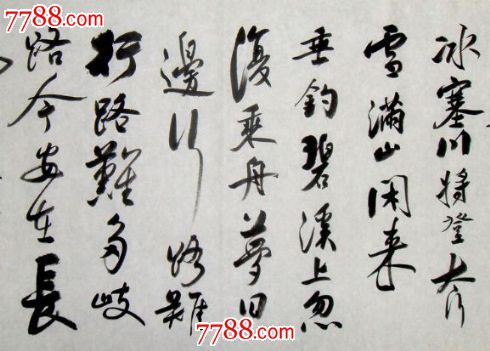 7788.com
冰塞川将登太行
雪滿山闲来
垂釣碧溪上忽
復乘舟夢日
邊行路難
行路難多歧
路今安在長
7788.com
7788.com